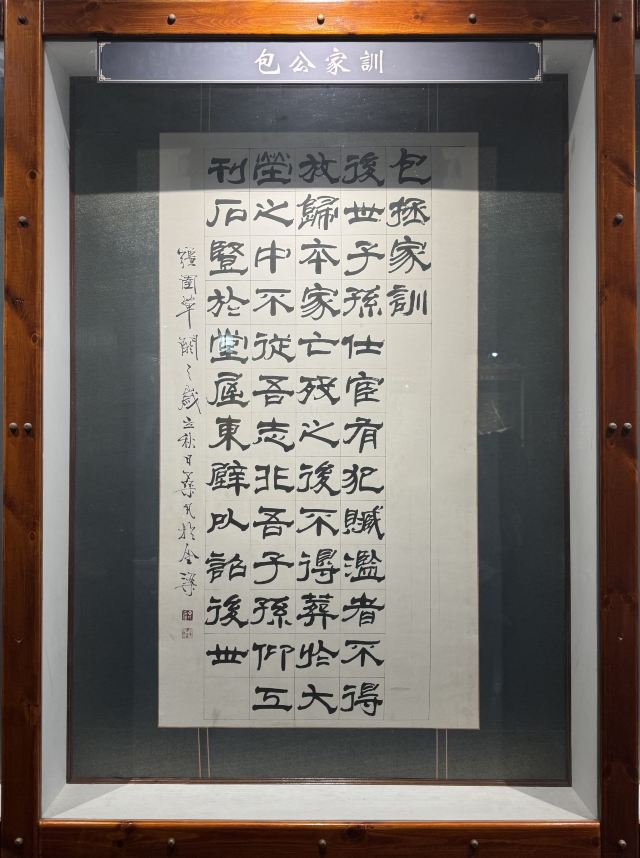 包公家訓
包拯家訓
後世子孫仕宦有犯贓濫者不得
放歸本家亡殁之後不得葬於大
塋之中不從吾志非吾子孫仰工
刊石豎於堂屋東壁以詔後世
歲立秋日